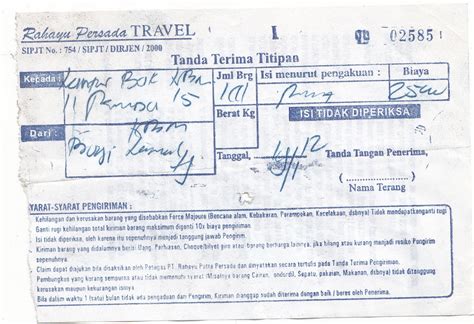 Rahayu Persada TRAVEL
I
02585
SIPJT No. : 754 / SIPJT / DIRJEN / 2000
Tanda Terima Titipan
Kepada :
Jml Brg
Isi menurut pengakuan :
Biaya
15
Berat Kg
ISI TIDAK DIPERIKSA
Dari :
Tanggal,
Tanda Tangan Penerima,
(
)
Nama Terang
SYARAT-SYARAT PENGIRIMAN :
Kehilangan dan kerusakan barang yang disebabkan Force Majoure (Bencana alam, Kebakaran, Perampokan, Kecelakaan, dsbnya) Tidak mendapatkan ganti rugi
Ganti rugi kehilangan total kiriman barang maksimum diganti 10x biaya pengiriman
Isi tidak diperiksa, oleh karena itu sepenuhnya menjadi tanggung jawab Pengirim.
Kiriman barang yang berisi uang. Perhiasan, Cheque/bilyet giro atau barang berharga lainnya, jika hilang atau kurang menjadi resiko Pengirim sepenuhnya.
Claim dapat diajukan bila disaksikan oleh Petugas PT. Rahayu Putra Persada dan dinyatakan secara tertulis pada Tanda Terima Pengiriman
Pembungkus yang kurang sempurna atau tidak memenuhi syarat (Misalnya barang Cairan, onderdil, Sepatu, pakaian, Makanan, dsbnya) tidak ditanggung kerusakan ataupun kekurangannya.
Bila dalam waktu 1 (satu) bulan tidak ada pengaduan dari Pengirim, Kiriman dianggap sudah diterima dengan baik / beres oleh Penerima.